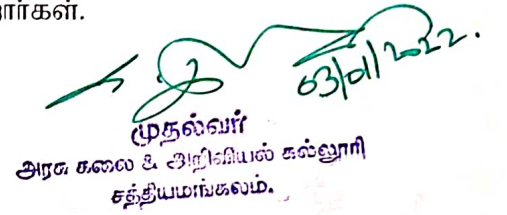 றார்கள்.
03/01/2022.
முதல்வர்
அரசு கலை & அறிவியல் கல்லூரி
சத்தியமங்கலம்.